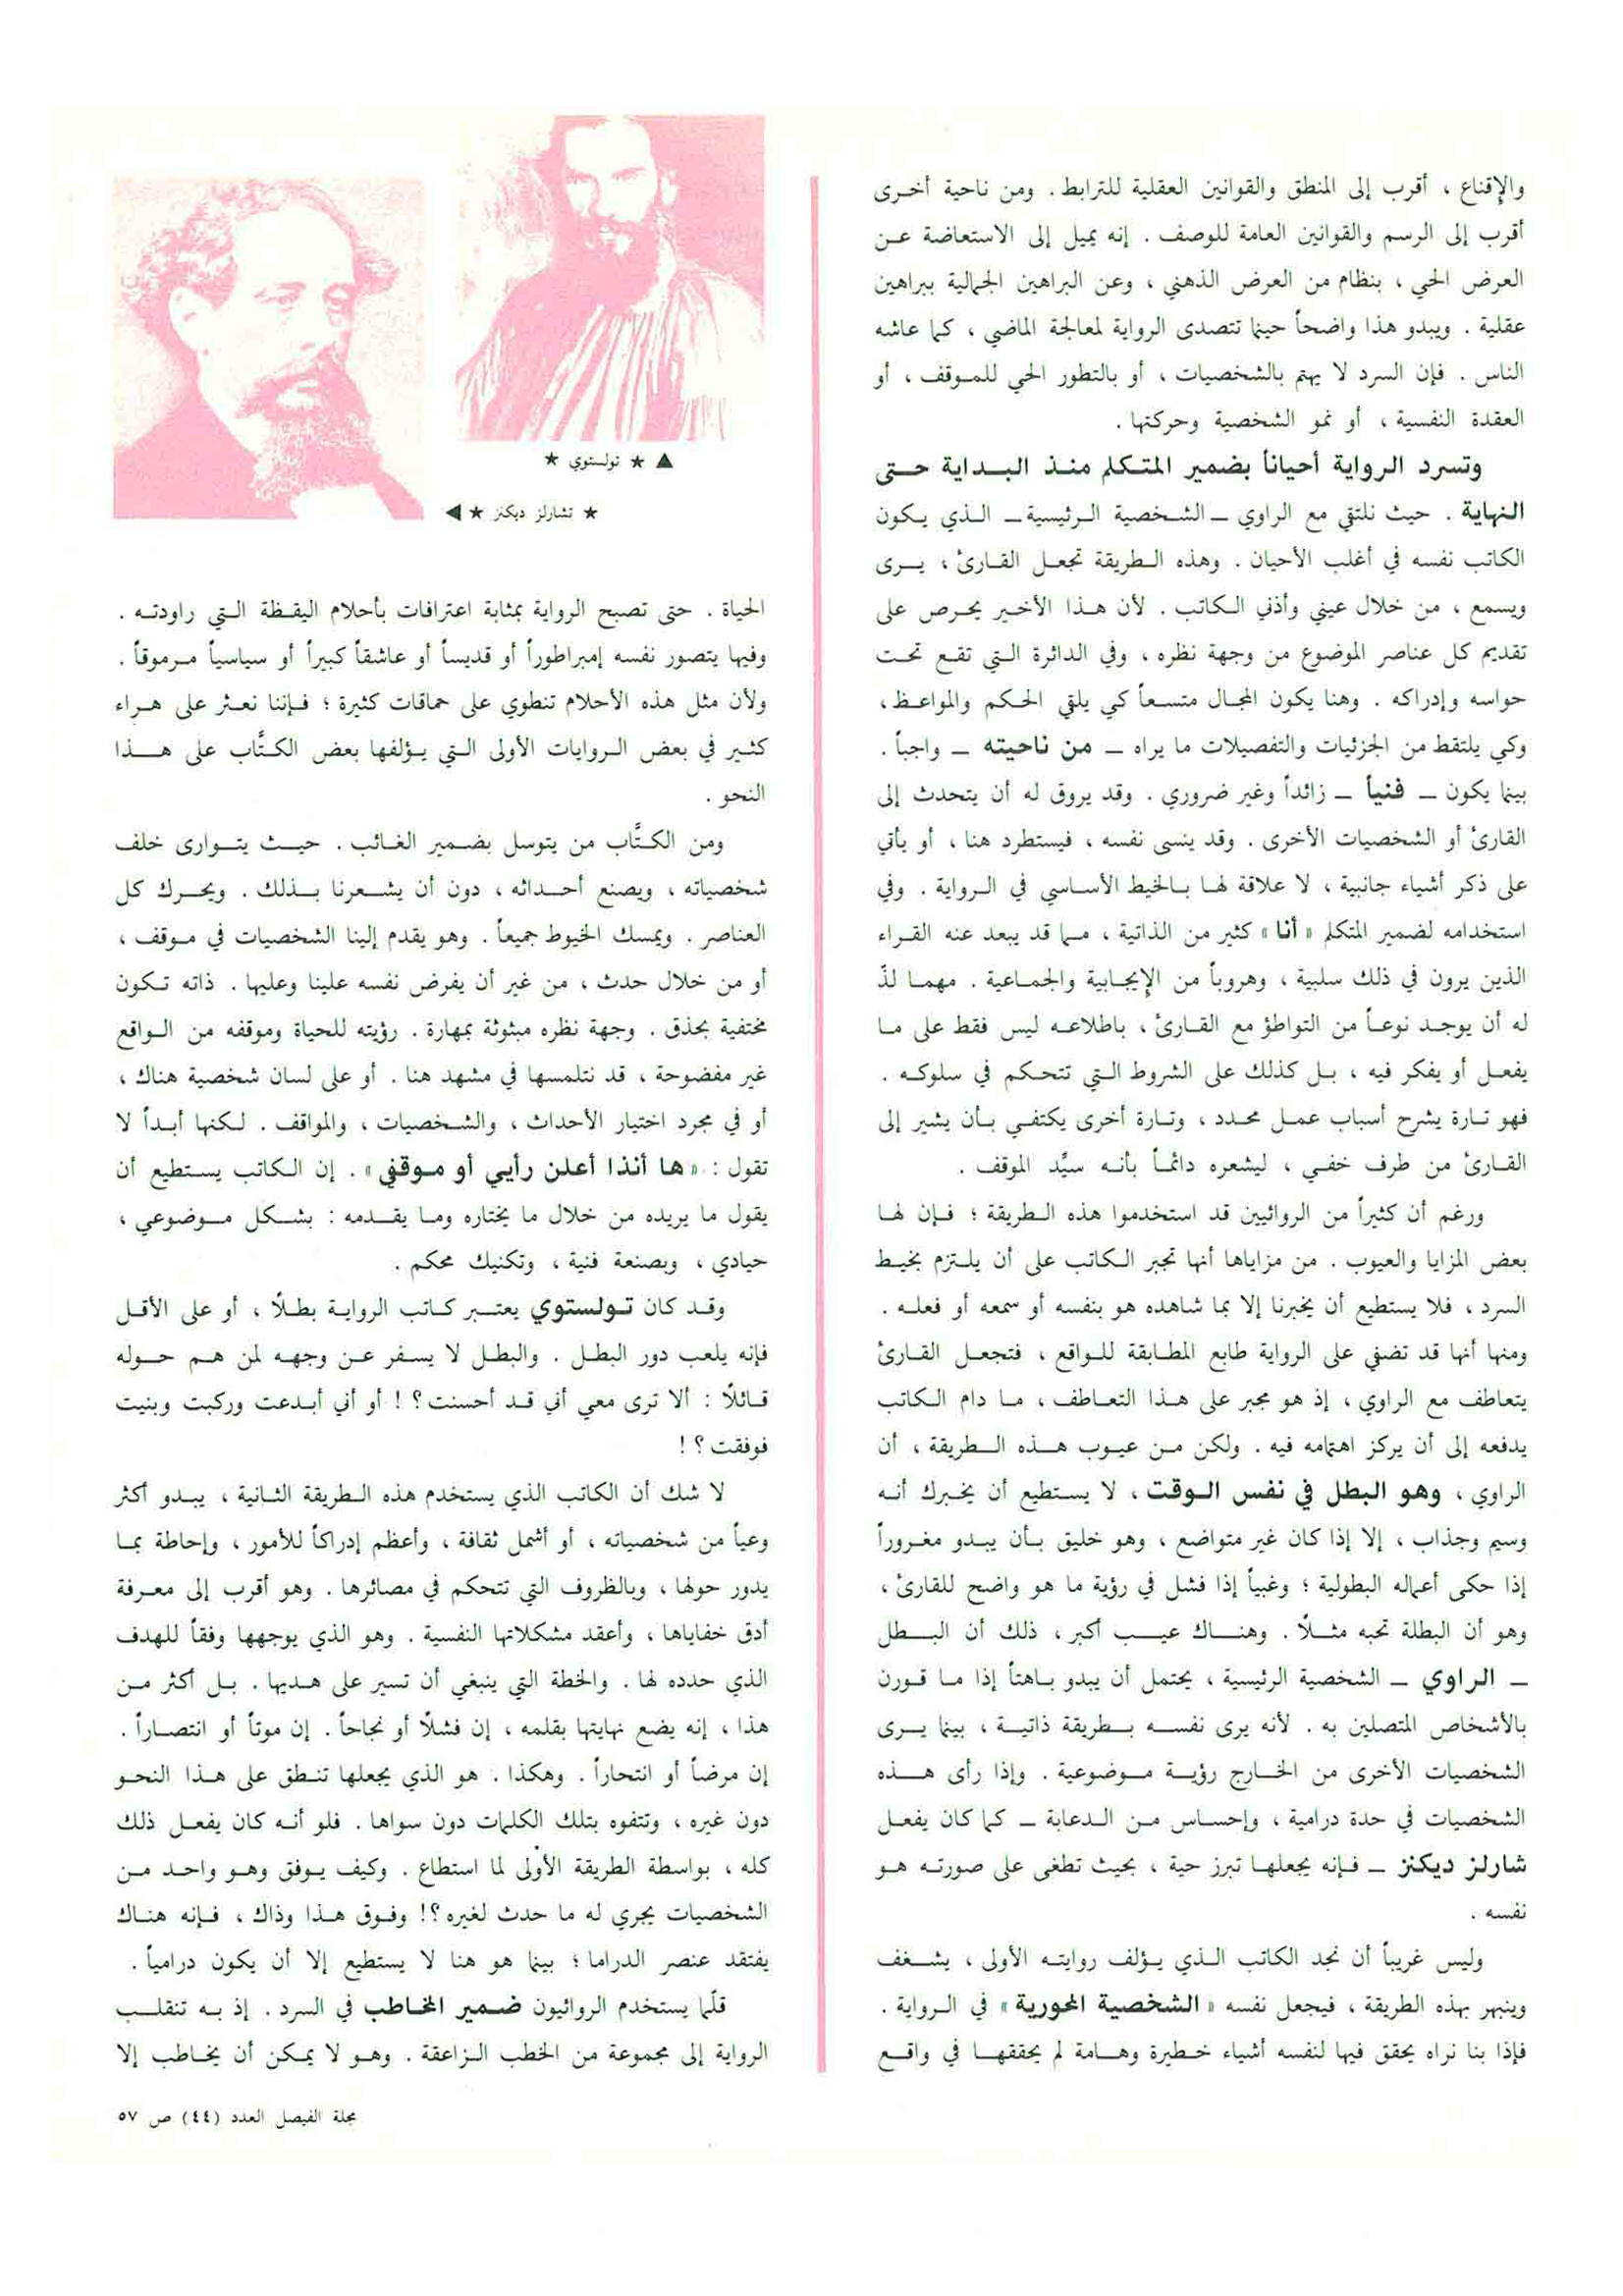 والإقناع ، أقرب إلى المنطق والقوانين العقلية للترابط . ومن ناحية أخرى
أقرب إلى الرسم والقوانين العامة للوصف . إنه يميل إلى الاستعاضة عن
العرض الحي ، بنظام من العرض الذهني ، وعن البراهين الجمالية ببراهين
عقلية . ويبدو هذا واضحاً حينما تتصدى الرواية لمعالجة الماضي ، كما عاشه
الناس . فإن السرد لا يهتم بالشخصيات ، أو بالتطور الحي للموقف ، أو
العقدة النفسية ، أو نمو الشخصية وحركتها .
وتسرد الرواية أحياناً بضمير المتكلم منذ البداية حتى
النهاية . حيث نلتقي مع الراوي – الشخصية الرئيسية – الذي يكون
الكاتب نفسه في أغلب الأحيان . وهذه الطريقة تجعل القارئ ، يرى
ويسمع ، من خلال عيني وأذني الكاتب . لأن هذا الأخير يحرص على
تقديم كل عناصر الموضوع من وجهة نظره ، وفي الدائرة التي تقع تحت
حواسه وإدراكه . وهنا يكون المجال متسعاً كي يلقي الحكم والمواعظ ،
وكي يلتقط من الجزئيات والتفصيلات ما يراه – من ناحيته – واجباً .
بينما يكون – فنياً – زائداً وغير ضروري . وقد يروق له أن يتحدث إلى
القارئ أو الشخصيات الأخرى . وقد ينسى نفسه ، فيستطرد هنا ، أو يأتي
على ذكر أشياء جانبية ، لا علاقة لها بالخيط الأساسي في الرواية . وفي
استخدامه لضمير المتكلم « أنا » كثير من الذاتية ، مما قد يبعد عنه القراء
الذين يرون في ذلك سلبية ، وهروباً من الإيجابية والجماعية . مهما لذّ
له أن يوجد نوعاً من التواطؤ مع القارئ ، باطلاعه ليس فقط على ما
يفعل أو يفكر فيه ، بل كذلك على الشروط التي تتحكم في سلوكه .
فهو تارة يشرح أسباب عمل محدد ، وتارة أخرى يكتفي بأن يشير إلى
القارئ من طرف خفي ، ليشعره دائماً بأنه سيِّد الموقف .
ورغم أن كثيراً من الروائيين قد استخدموا هذه الطريقة ؛ فإن لها
بعض المزايا والعيوب . من مزاياها أنها تجبر الكاتب على أن يلتزم بخيط
السرد ، فلا يستطيع أن يخبرنا إلا بما شاهده هو بنفسه أو سمعه أو فعله .
ومنها أنها قد تضفي على الرواية طابع المطابقة للواقع ، فتجعل القارئ
يتعاطف مع الراوي ، إذ هو مجبر على هذا التعاطف ، ما دام الكاتب
يدفعه إلى أن يركز اهتمامه فيه . ولكن من عيوب هذه الطريقة ، أن
الراوي ، وهو البطل في نفس الوقت ، لا يستطيع أن يخبرك أنه
وسيم وجذاب ، إلا إذا كان غير متواضع ، وهو خليق بأن يبدو مغروراً
إذا حكى أعماله البطولية ؛ وغبياً إذا فشل في رؤية ما هو واضح للقارئ ،
وهو أن البطلة تحبه مثلاً . وهناك عيب أكبر ، ذلك أن البطل
– الراوي – الشخصية الرئيسية ، يحتمل أن يبدو باهتاً إذا ما قورن
بالأشخاص المتصلين به . لأنه يرى نفسه بطريقة ذاتية ، بينما يرى
الشخصيات الأخرى من الخارج رؤية موضوعية . وإذا رأى هذه
الشخصيات في حدة درامية ، وإحساس من الدعابة – كما كان يفعل
شارلز ديكنز – فإنه يجعلها تبرز حية ، بحيث تطغى على صورته هو
نفسه .
وليس غريباً أن نجد الكاتب الذي يؤلف روايته الأولى ، يشغف
وينبهر بهذه الطريقة ، فيجعل نفسه « الشخصية المحورية » في الرواية .
فإذا بنا نراه يحقق فيها لنفسه أشياء خطيرة وهامة لم يحققها في واقع
▲ ★ تولستوي ★
★ تشارلز ديكنز ★ ◀
الحياة . حتى تصبح الرواية بمثابة اعترافات بأحلام اليقظة التي راودته .
وفيها يتصور نفسه إمبراطوراً أو قديساً أو عاشقاً كبيراً أو سياسياً مرموقاً .
ولأن مثل هذه الأحلام تنطوي على حماقات كثيرة ؛ فإننا نعثر على هراء
كثير في بعض الروايات الأولى التي يؤلفها بعض الكتَّاب على هذا
النحو .
ومن الكتَّاب من يتوسل بضمير الغائب . حيث يتوارى خلف
شخصياته ، ويصنع أحداثه ، دون أن يشعرنا بذلك . ويحرك كل
العناصر . ويمسك الخيوط جميعاً . وهو يقدم إلينا الشخصيات في موقف ،
أو من خلال حدث ، من غير أن يفرض نفسه علينا وعليها . ذاته تكون
مختفية بحذق . وجهة نظره مبثوثة بمهارة . رؤيته للحياة وموقفه من الواقع
غير مفضوحة ، قد نتلمسها في مشهد هنا . أو على لسان شخصية هناك ،
أو في مجرد اختيار الأحداث ، والشخصيات ، والمواقف . لكنها أبداً لا
تقول : « ها أنذا أعلن رأيي أو موقفي » . إن الكاتب يستطيع أن
يقول ما يريده من خلال ما يختاره وما يقدمه : بشكل موضوعي ،
حيادي ، وبصنعة فنية ، وتكنيك محكم .
وقد كان تولستوي يعتبر كاتب الرواية بطلاً ، أو على الأقل
فإنه يلعب دور البطل . والبطل لا يسفر عن وجهه لمن هم حوله
قائلاً : ألا ترى معي أني قد أحسنت ؟ ! أو أني أبدعت وركبت وبنيت
فوفقت ؟ !
لا شك أن الكاتب الذي يستخدم هذه الطريقة الثانية ، يبدو أكثر
وعياً من شخصياته ، أو أشمل ثقافة ، وأعظم إدراكاً للأمور ، وإحاطة بما
يدور حولها ، وبالظروف التي تتحكم في مصائرها . وهو أقرب إلى معرفة
أدق خفاياها ، وأعقد مشكلاتها النفسية . وهو الذي يوجهها وفقاً للهدف
الذي حدده لها . والخطة التي ينبغي أن تسير على هديها . بل أكثر من
هذا ، إنه يضع نهايتها بقلمه ، إن فشلاً أو نجاحاً . إن موتاً أو انتصاراً .
إن مرضاً أو انتحاراً . وهكذا . هو الذي يجعلها تنطق على هذا النحو
دون غيره ، وتتفوه بتلك الكلمات دون سواها . فلو أنه كان يفعل ذلك
كله ، بواسطة الطريقة الأولى لما استطاع . وكيف يوفق وهو واحد من
الشخصيات يجري له ما حدث لغيره ؟! وفوق هذا وذاك ، فإنه هناك
يفتقد عنصر الدراما ؛ بينما هو هنا لا يستطيع إلا أن يكون درامياً .
قلّما يستخدم الروائيون ضمير المخاطب في السرد . إذ به تنقلب
الرواية إلى مجموعة من الخطب الزاعقة . وهو لا يمكن أن يخاطب إلا
مجلة الفيصل العدد (٤٤) ص ٥٧